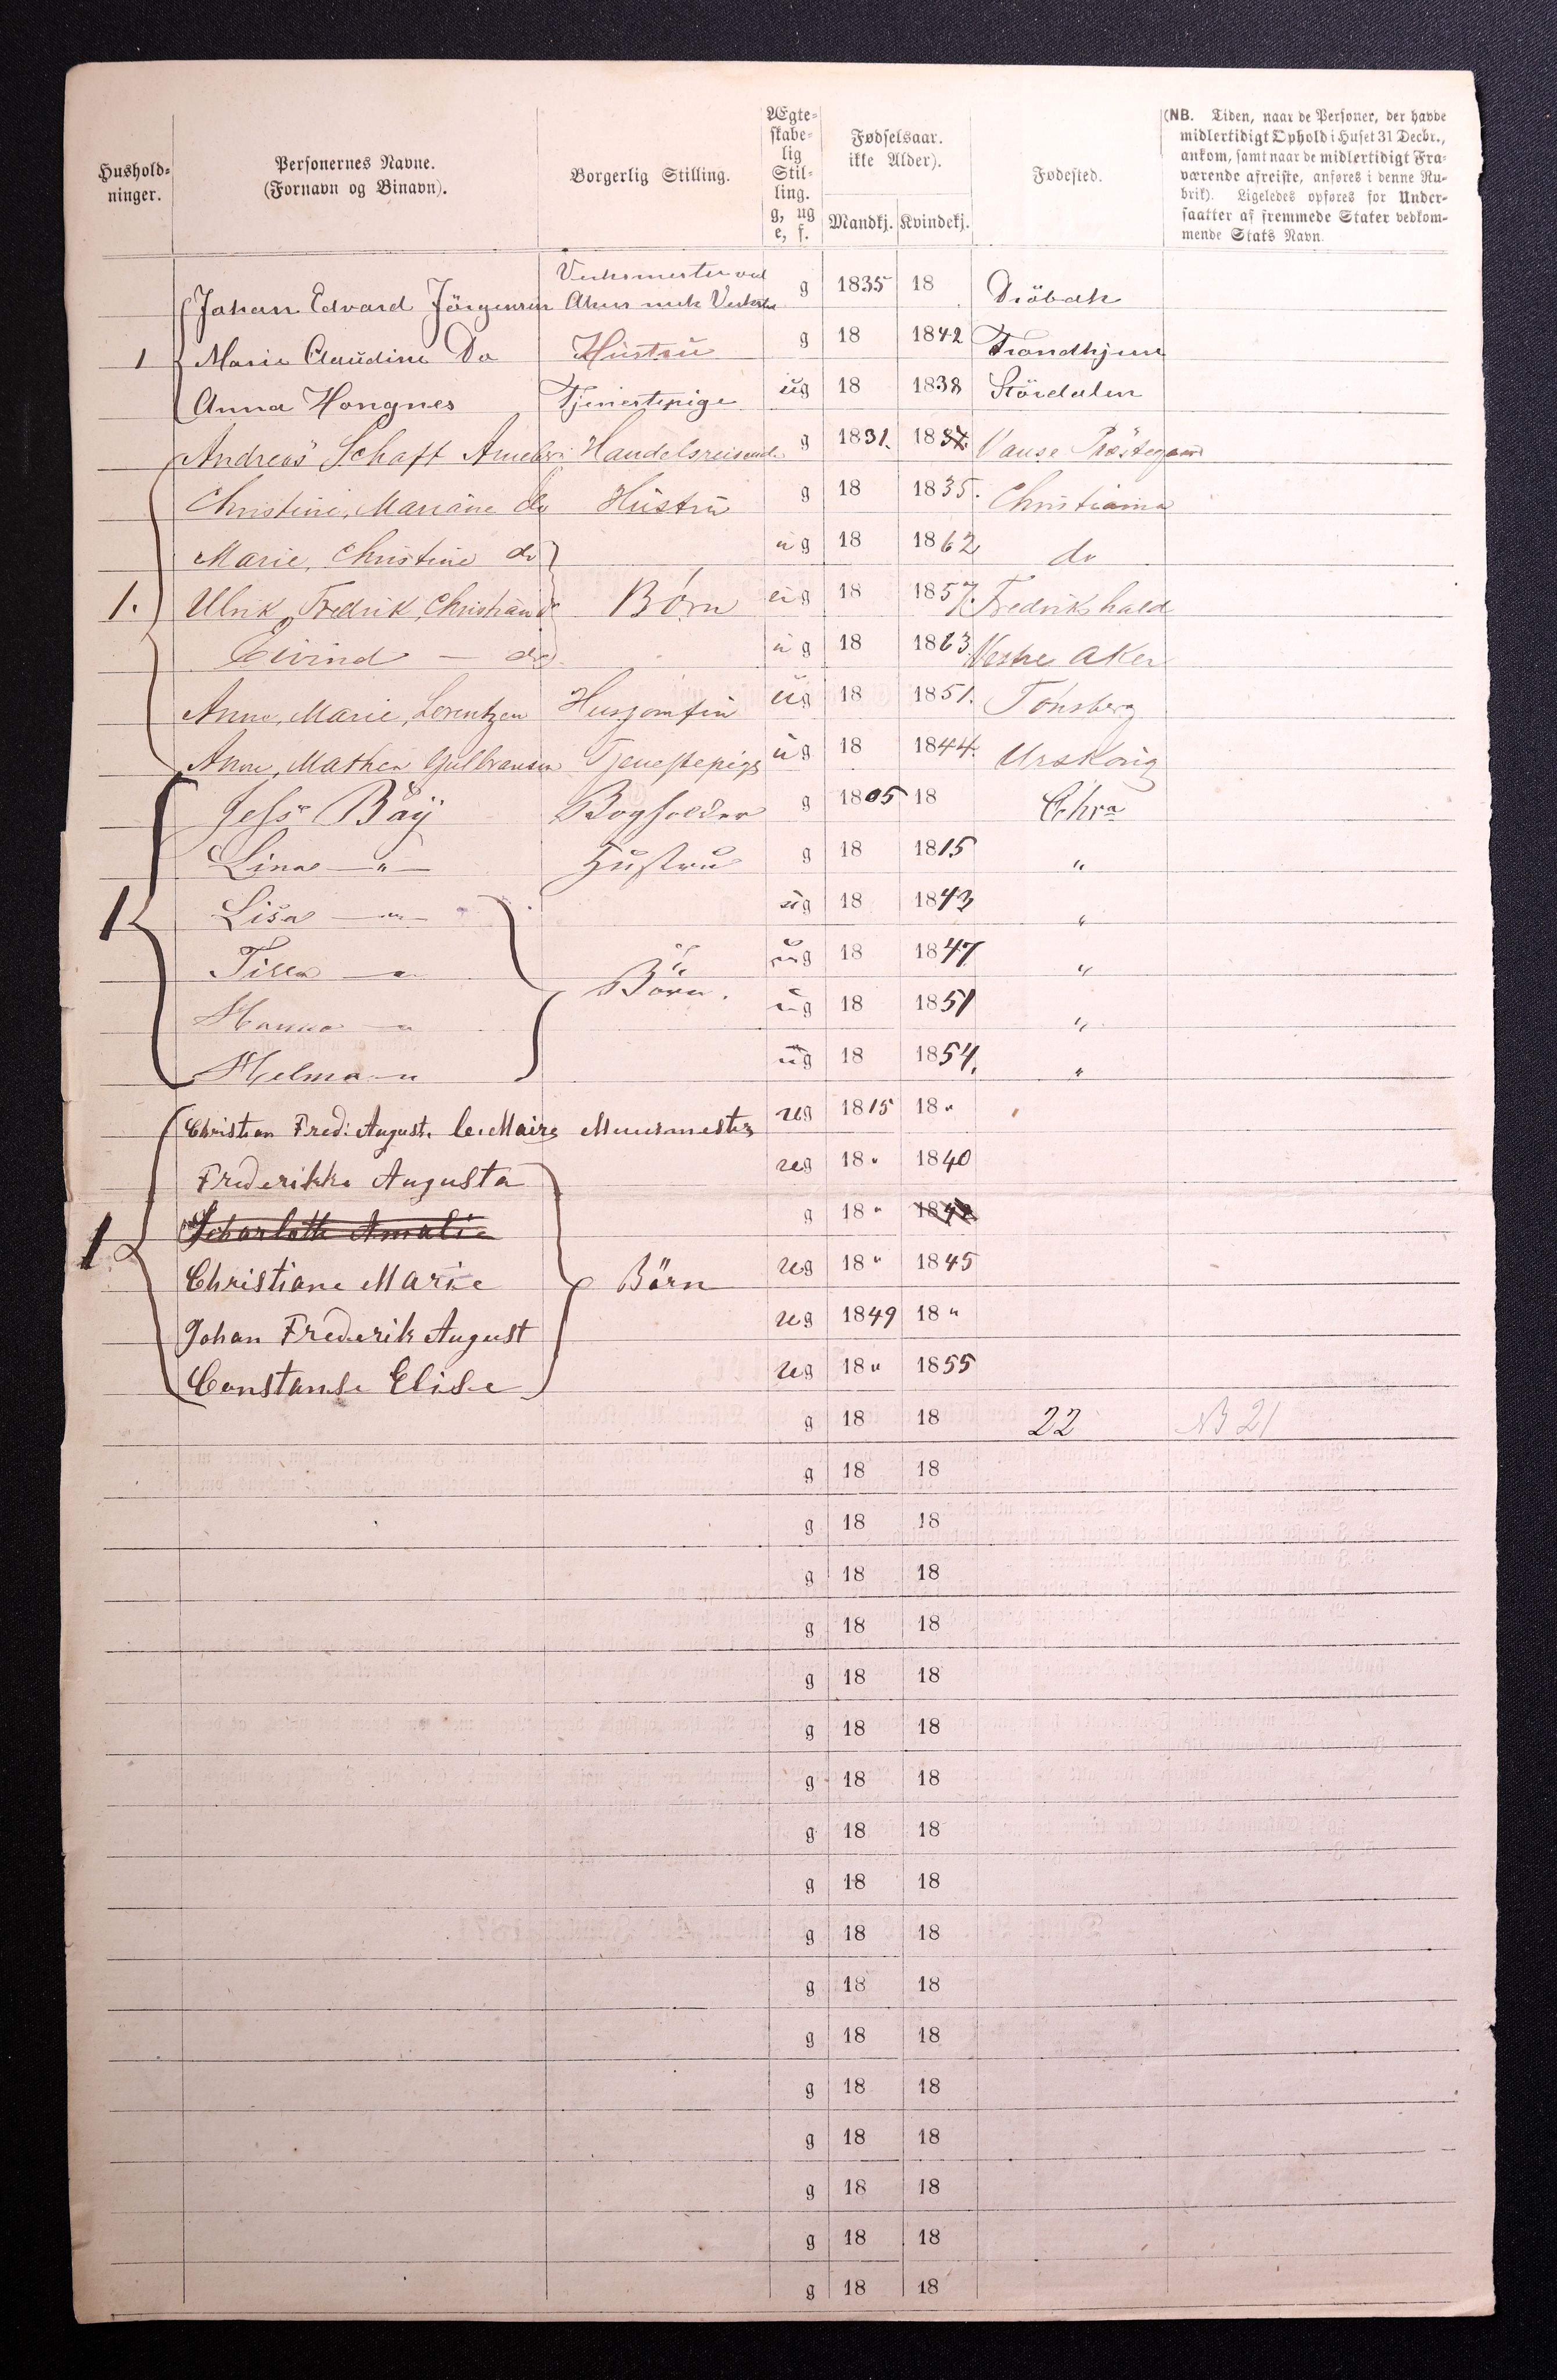 Hushold-
ninger.
Personernes Navne.
(Fornavn og Binavn).
Borgerlig Stilling.
Ægte-
skabe-
lig
Stil-
ling.
g, ug
e, f.
Fødselsaar.
ikke Alder).
Mandkj. Kvindekj.
Fødested.
(NB. Tiden, naar de Personer, der havde
midlertidigt Ophold i Huset 31 Decbr.,
ankom, samt naar de midlertidigt Fra-
værende afreiste, anføres i denne Ru-
brik). Ligeledes opføres for Under-
saatter af fremmede Stater vedkom-
mende Stats Navn.
Verksmester ved
Johan Edvard Jörgensen Akers mek Verksted g 1835 18 Dröbak
1 Marie Claudine Do Hustru g 18 1842 Trondhjem
Anna Hongnes Tjenestepige ug 18 1838 Stördalen
Andreas Schaft Handelsreisende g 1831. 18 Vanse Præstegaard
Christine, Mariane do Hustru g 18 1835. Christiania
Marie, Christine do ug 18 1862 do
1. Ulrik, Fredrik, Christian do Börn ug 18 1857. Fredrikshald
Eivind — do ug 18 1863 Vestre Aker
Anne, Marie, Lorentzen Husjomfru ug 18 1851. Tönsberg
Anne, Mathea Gulbransen Tjenestepige ug 18 1844. Urskoug
Jess Bäÿ Bogholder g 1805 18 Chra
Lina —"— Hustru g 18 1815 "
1 Lisa —"— ug 18 1843 "
Tilla —"— ug 18 1847 "
Hanna —" Börn. ug 18 1851 "
Helma —" ug 18 1854. "
Christian Fred: August. le Maire Muurmester ug 1815 18"
Frederikke Augusta ug 18" 1840
1 Scharlotte Amalie g 18" 1842
Christiane Marie Börn ug 18" 1845
Johan Frederik August ug 1849 18"
Constanse Elise ug 18" 1855
g 18 18 22 NB 21
g 18 18
g 18 18
g 18 18
g 18 18
g 18 18
g 18 18
g 18 18
g 18 18
g 18 18
g 18 18
g 18 18
g 18 18
g 18 18
g 18 18
g 18 18
g 18 18
g 18 18